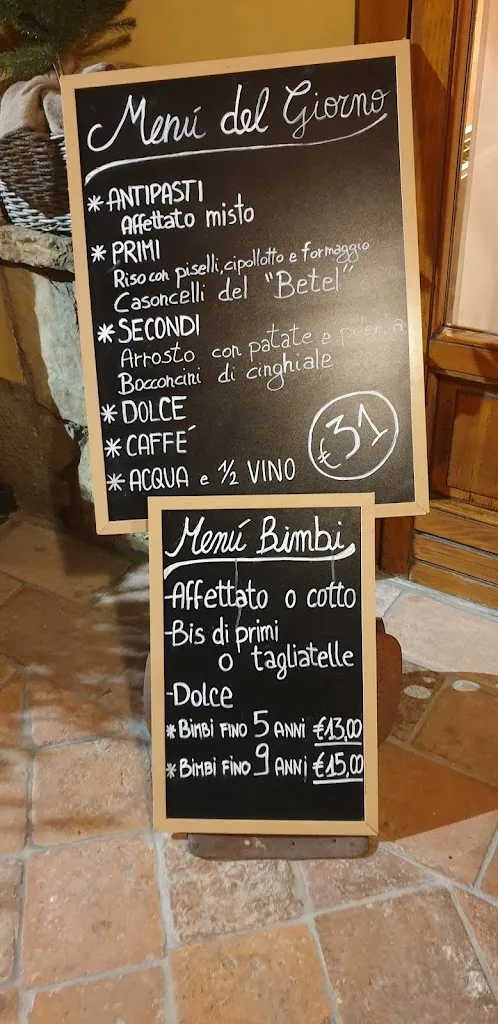 Menú del Giorno
* ANTIPASTI
Affettato misto
* PRIMI
Riso con piselli, cipollotto e formaggio
Casoncelli del "Betel"
* SECONDI
Arrosto con patate e
Bocconcini di cinghiale
* DOLCE
* CAFFÈ
* ACQUA e 1/2 VINO
€31
Menú Bimbi
-Affettato o cotto
-Bis di primi
o tagliatelle
-Dolce
* BIMBI FINO 5 ANNI €13,00
* BIMBI FINO 9 ANNI €15,00